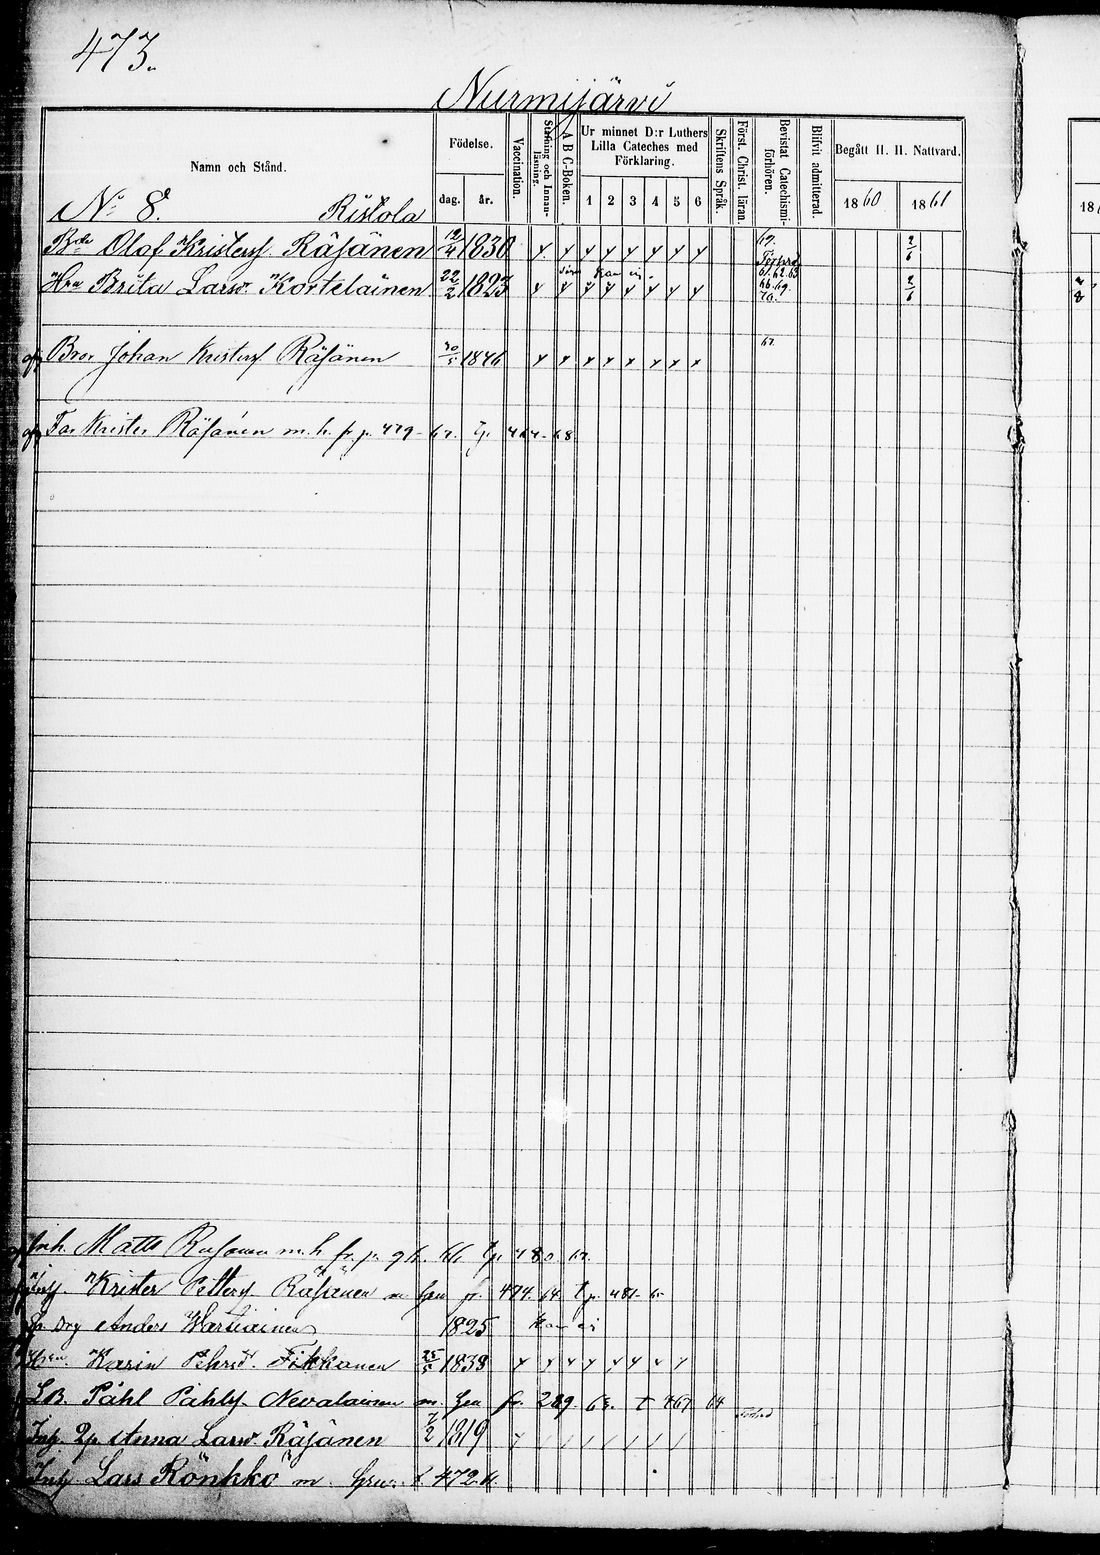 473.
Nurmijärvi
Namn och Stånd.
Födelse.
dag.
år.
Vaccination.
Stafning och Innanläsning.
A B C-Boken.
Ur minnet D:r Luthers Lilla Cateches med Förklaring.
1 2 3 4 5 6
Skriftens Språk.
Först. Christ. läran.
Bevistat Catechismiförhören.
Blifvit admitterad.
Begått H. H. Nattvard.
1860
1861
No 8. Ristola
Bde Olof Kristerss. Räsänen 12/4 1830 y y y y y y y y 2/6
Hru Brita Larsd. Kortelainen 22/2 1823 y y y y y y y y 61.62.63 66.69 70. 2/6
Bror Johan Kristerss Räsänen 30/5 1846 x x x x x x x x 67.
Far Krister Räsänen m. h. fr. p. 479- 67. tp. 464-68.
Inh. Matts Räsänen m. h. fr. p. 66. tp. 480. 67.
Inh. Krister Petterss. Räsänen m. hru fr. 474. 64. t p. 481.
Anders Wartiainen 1825 kan ej
Hru. Karin Pehrsd. Tikkanen 25/5 1838 y y y y y y y y
LB. Påhl Påhlss. Nevalainen m. hru fr. 289. 63. t 467 64
Inh. Anna Larsd. Räsänen 7/2 1819
Inh Lars Rönkkö m. hru. t. 472.